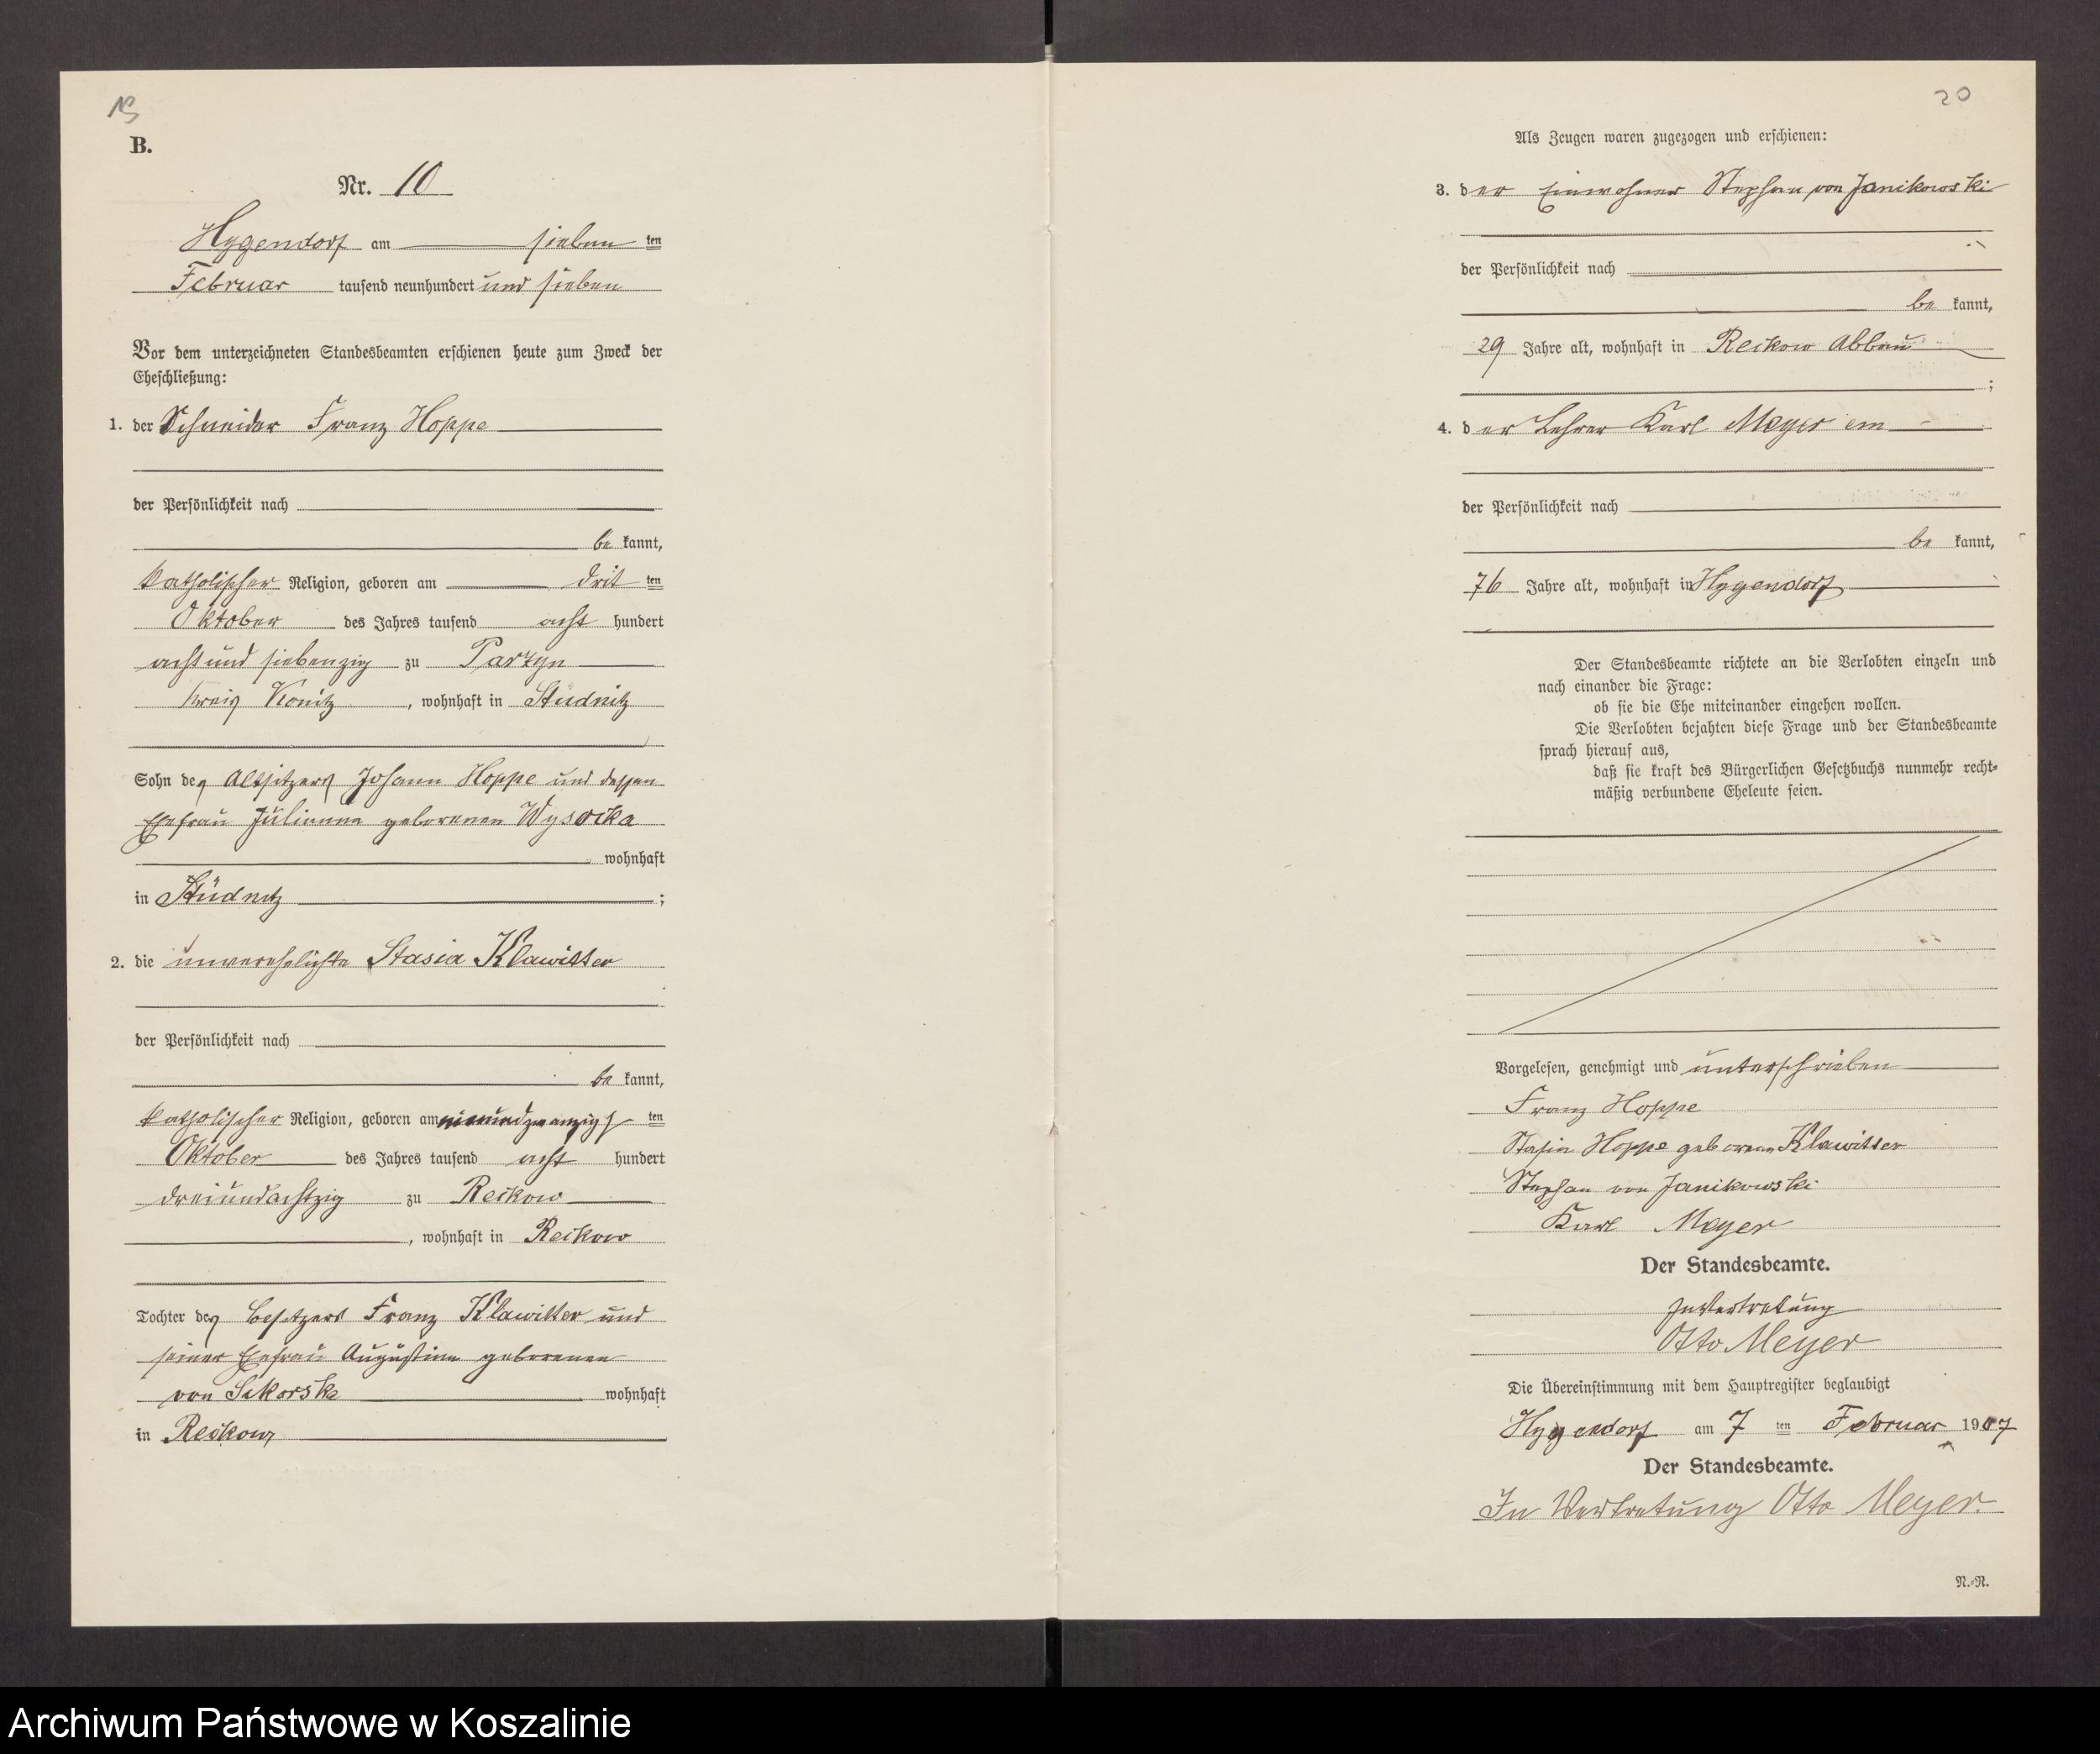 B.
Nr. 10
Hygendorf am sieben ten
Februar tausend neunhundert und sieben
Vor dem unterzeichneten Standesbeamten erschienen heute zum Zweck der
Eheschließung:
1. der Schneider Franz Hoppe
der Persönlichkeit nach
be kannt,
katholischer Religion, geboren am drit ten
Oktober des Jahres tausend acht hundert
acht und siebenzig zu Parzyn
Kreis Konitz, wohnhaft in Stüdnitz
Sohn des Altsitzers Johann Hoppe und dessen
Ehefrau Julianna geborenen Wysocka
wohnhaft
in Stüdnitz ;
2. die unverehelichte Stasia Klawitter
der Persönlichkeit nach
be kannt,
katholischer Religion, geboren am neunundzwanzigs ten
Oktober des Jahres tausend acht hundert
dreiundachtzig zu Reckow
, wohnhaft in Reckow
Tochter des Besitzers Franz Klawitter und
seiner Ehefrau Augustine geborenen
von Sikorska wohnhaft
in Reckow
20
Als Zeugen waren zugezogen und erschienen:
3. der Einwohner Stephan von Janikowski
der Persönlichkeit nach
be kannt,
29 Jahre alt, wohnhaft in Reckow Abbau
;
4. der Lehrer Karl Meyer em
der Persönlichkeit nach
be kannt,
76 Jahre alt, wohnhaft in Hygendorf
Der Standesbeamte richtete an die Verlobten einzeln und
nach einander die Frage:
ob sie die Ehe miteinander eingehen wollen.
Die Verlobten bejahten diese Frage und der Standesbeamte
sprach hierauf aus,
daß sie kraft des Bürgerlichen Gesetzbuchs nunmehr recht-
mäßig verbundene Eheleute seien.
Vorgelesen, genehmigt und unterschrieben
Franz Hoppe
Stasia Hoppe geborene Klawitter
Stephan von Janikowski
Karl Meyer
Der Standesbeamte.
In Vertretung
Otto Meyer
Die Übereinstimmung mit dem Hauptregister beglaubigt
Hygendorf am 7 ten Februar 1907
Der Standesbeamte.
In Vertretung Otto Meyer.
N.-N.
Archiwum Państwowe w Koszalinie